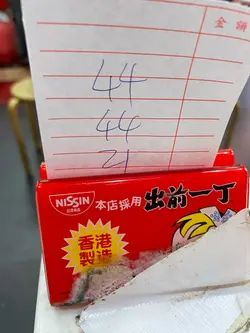 金額
44
44
21
NISSIN
本店採用
出前一丁
香港
製造